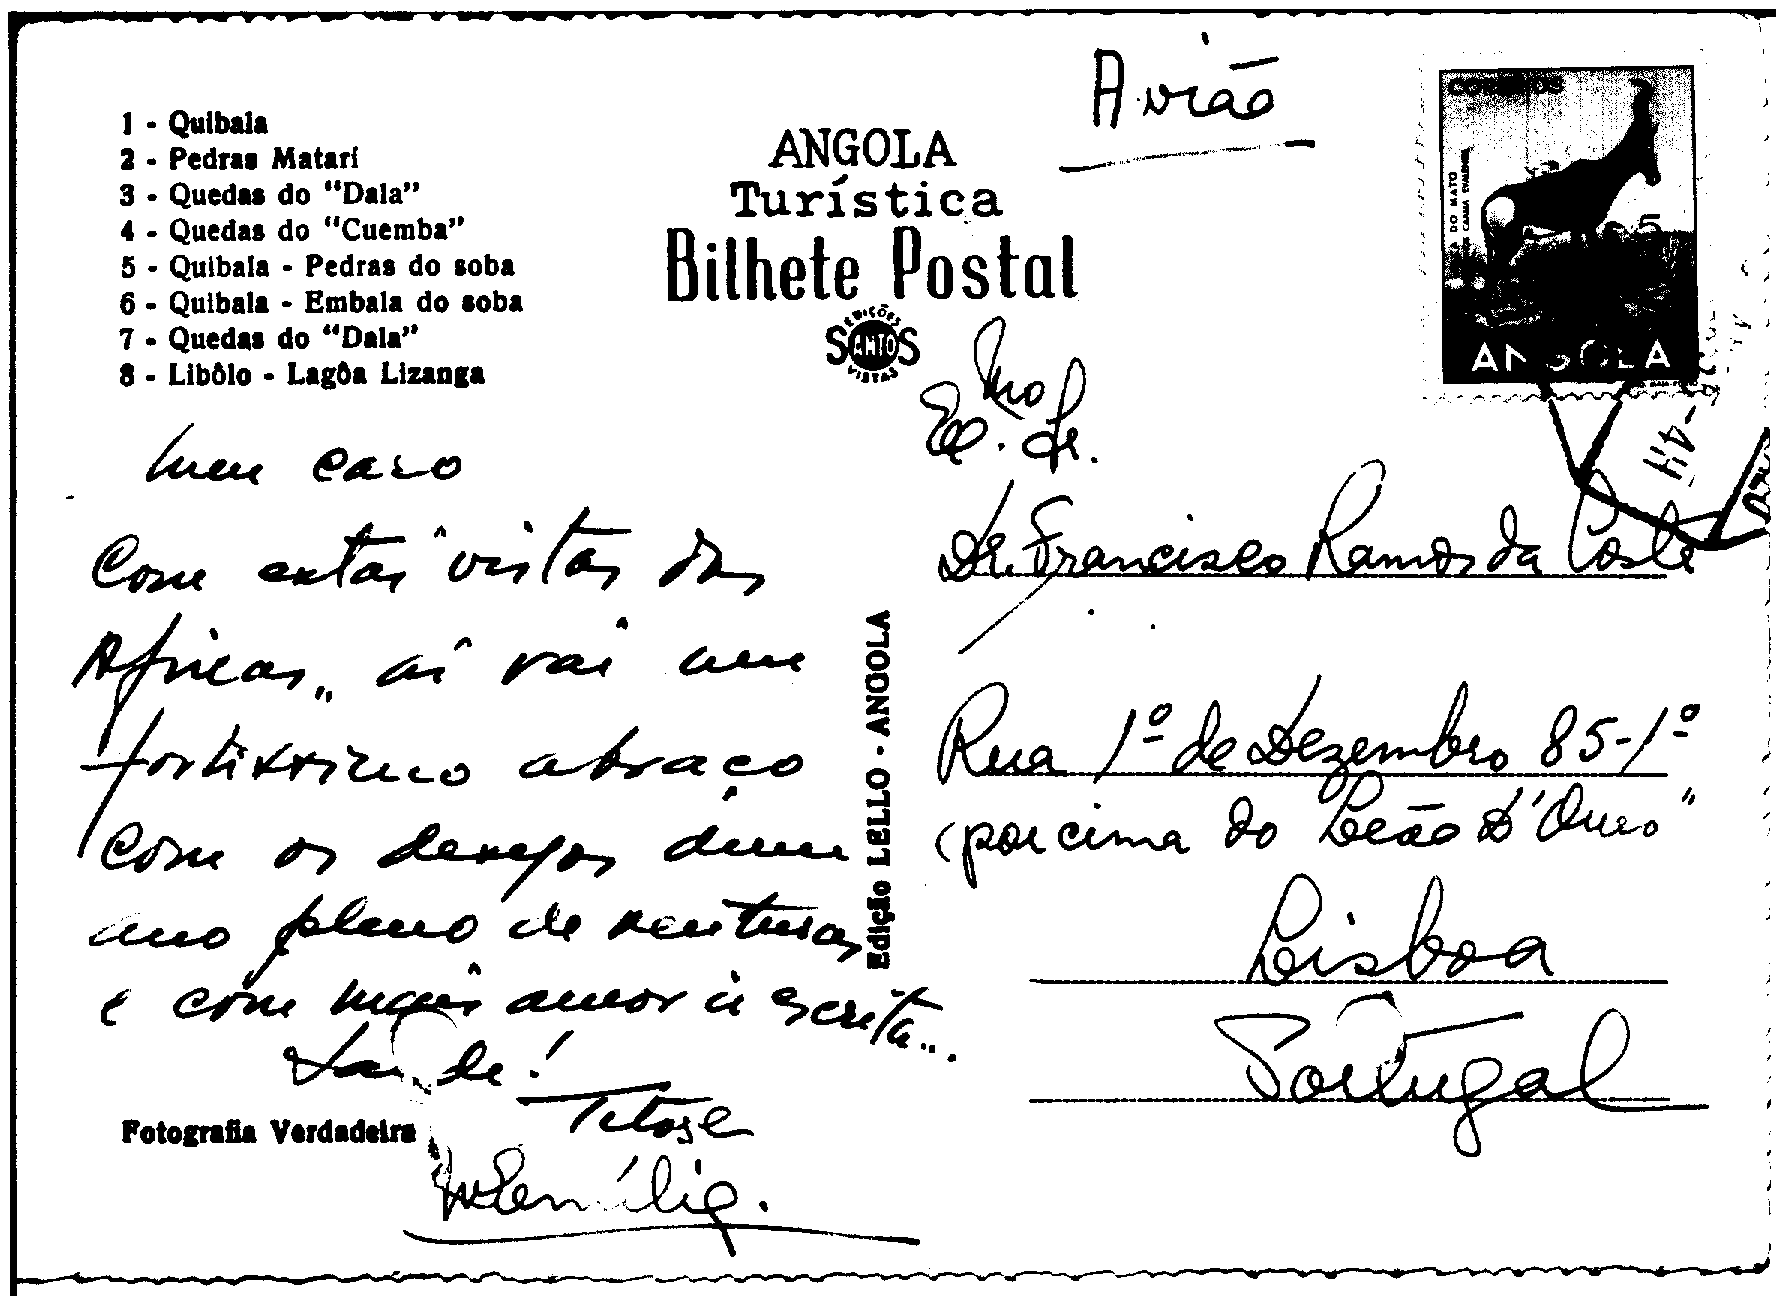 1 - Quibala
2 - Pedras Matari
3 - Quedas do “Dala”
4 - Quedas do “Cuemba”
5 - Quibala - Pedras do soba
6 - Quibala - Embala do soba
7 - Quedas do “Dala”
8 - Libôlo - Lagôa Lizanga
ANGOLA
Turística
Bilhete Postal
EDIÇÕES
SANTOS
VISTAS
Avião
CORREIOS
ANGOLA
Meu caro
Com estas vistas das
Africas, aí vai um
fortissimo abraço
com os desejos dum
ano pleno de venturas
e com mais amor à escrita...
Saúde!
Fotografia Verdadeira
Mª Emília.
Edição LELLO - ANGOLA
Exmo Sr.
Dr. Francisco Ramos da Costa
Rua 1º de Dezembro 85-1º
(por cima do Leão D'Ouro"
Lisboa
Portugal